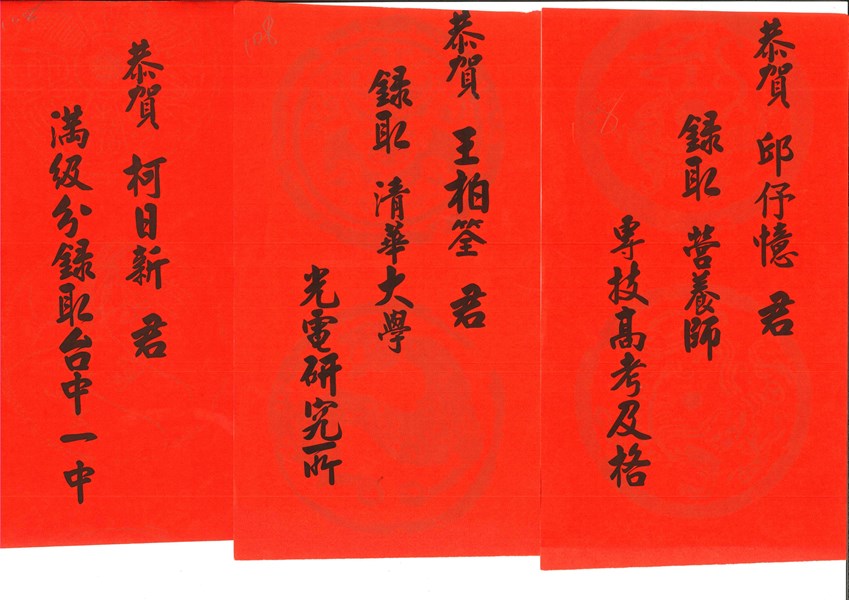 恭賀 邱伃憶 君
録取 营養師
專技高考及格
恭賀 王柏筌 君
録取 清華大學
光電研究所
恭賀 柯日新 君
滿级分録取台中一中